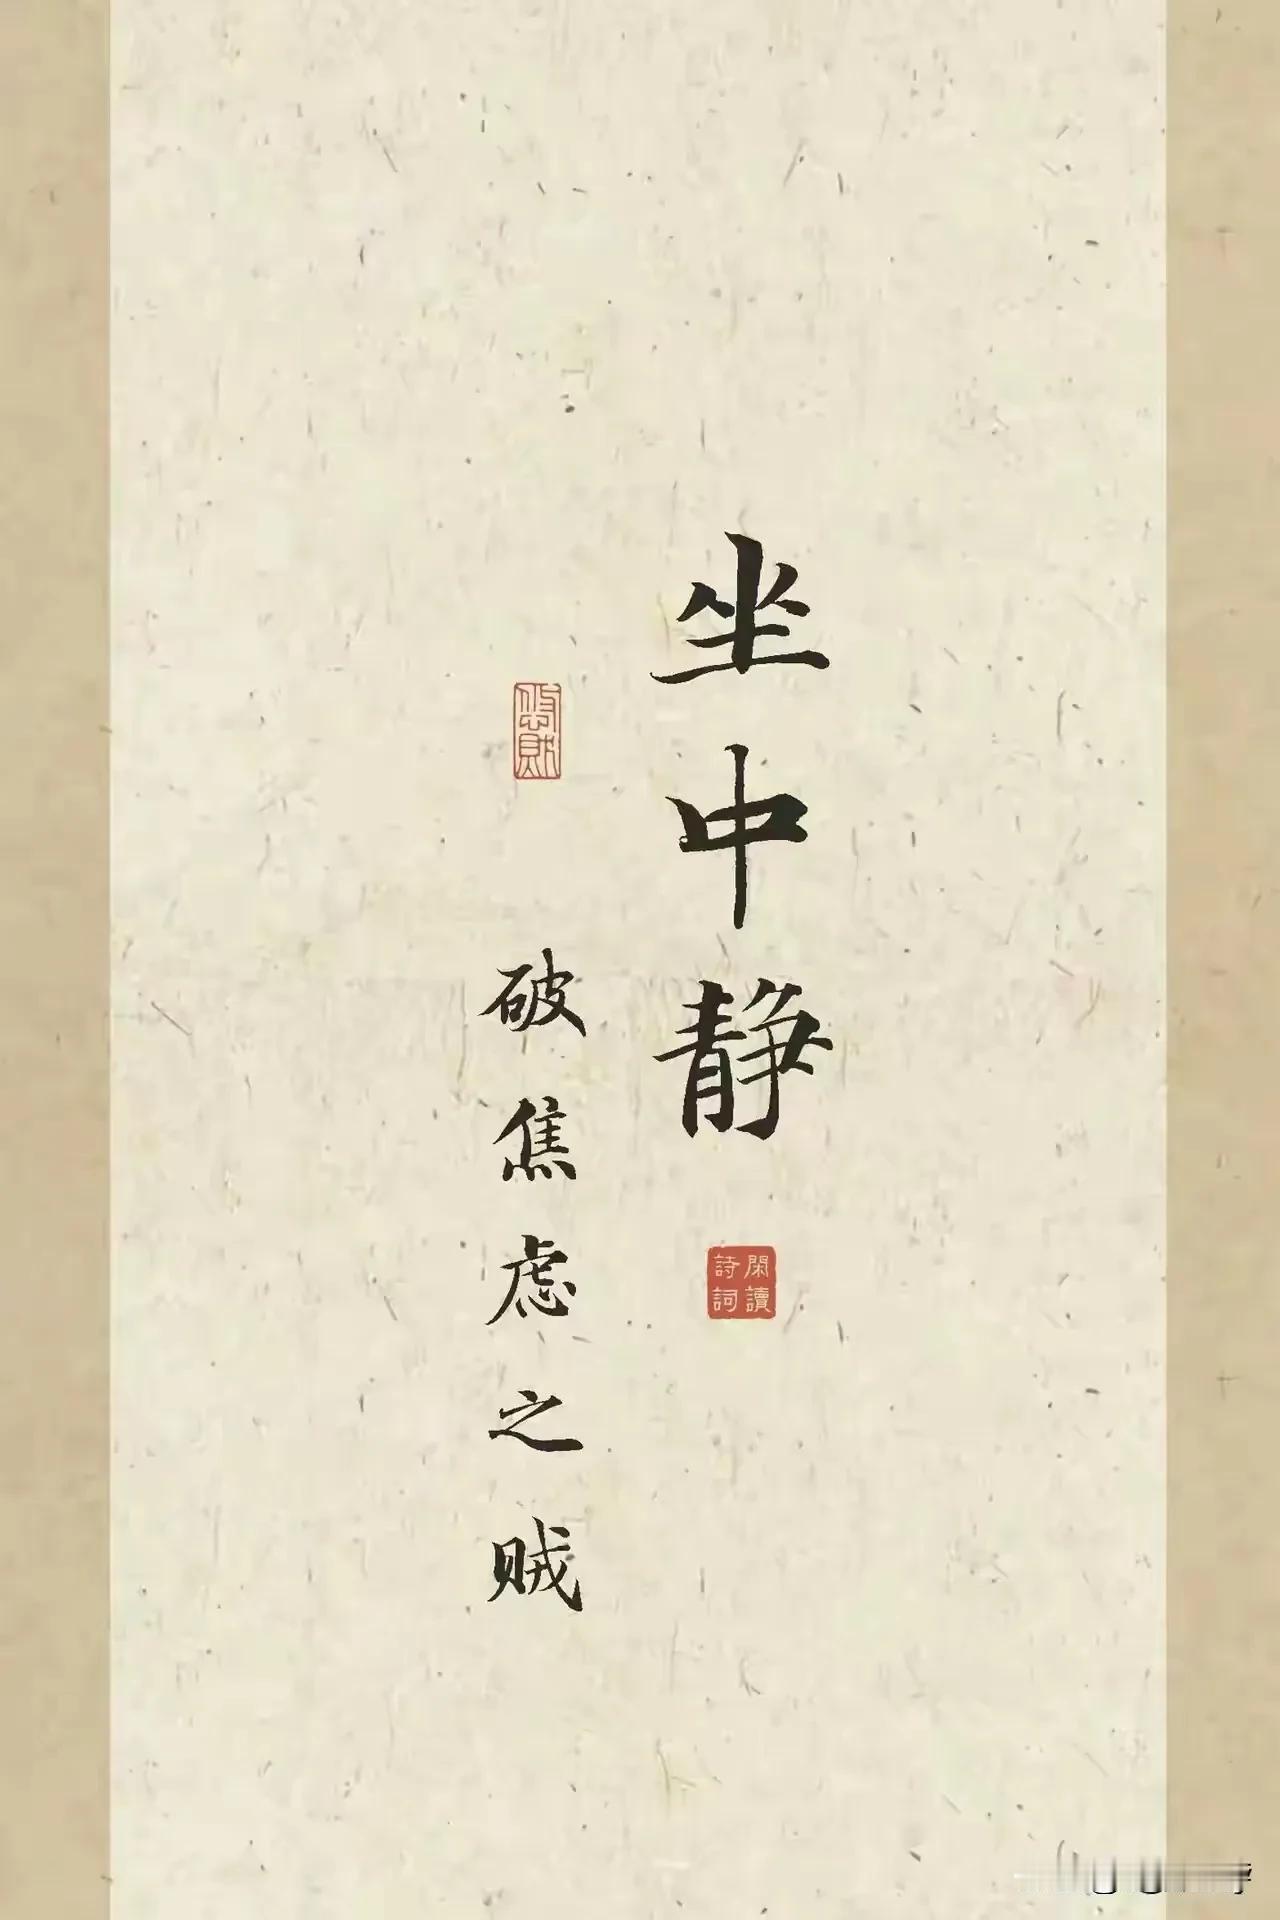 坐中静
閑讀
詩詞
破焦虑之贼